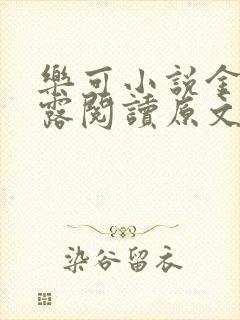 樂可小說金
露閱讀原文
染谷留衣